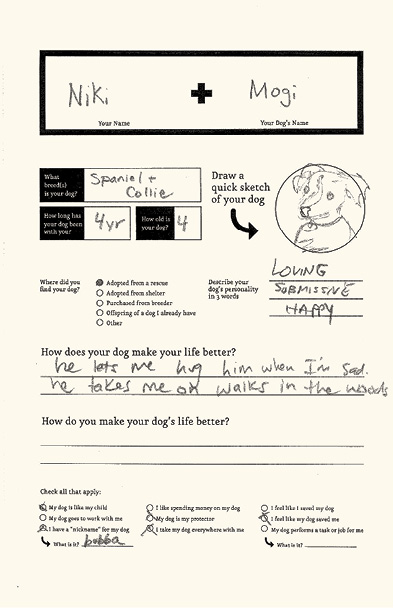 Niki + Mogi
Your Name Your Dog's Name
What breed(s) is your dog? Spaniel + Collie
How long has your dog been with you? 4yr How old is your dog? 4
Draw a quick sketch of your dog
Where did you find your dog?
Adopted from a rescue
Adopted from shelter
Purchased from breeder
Offspring of a dog I already have
Other
Describe your dog's personality in 3 words
LOVING
SUBMISSIVE
HAPPY
How does your dog make your life better?
he lets me hug him when I'm sad.
he takes me on walks in the woods
How do you make your dog's life better?
Check all that apply:
My dog is like my child
My dog goes to work with me
I have a "nickname" for my dog
What is it? bubba
I like spending money on my dog
My dog is my protector
I take my dog everywhere with me
I feel like I saved my dog
I feel like my dog saved me
My dog performs a task or job for me
What is it?